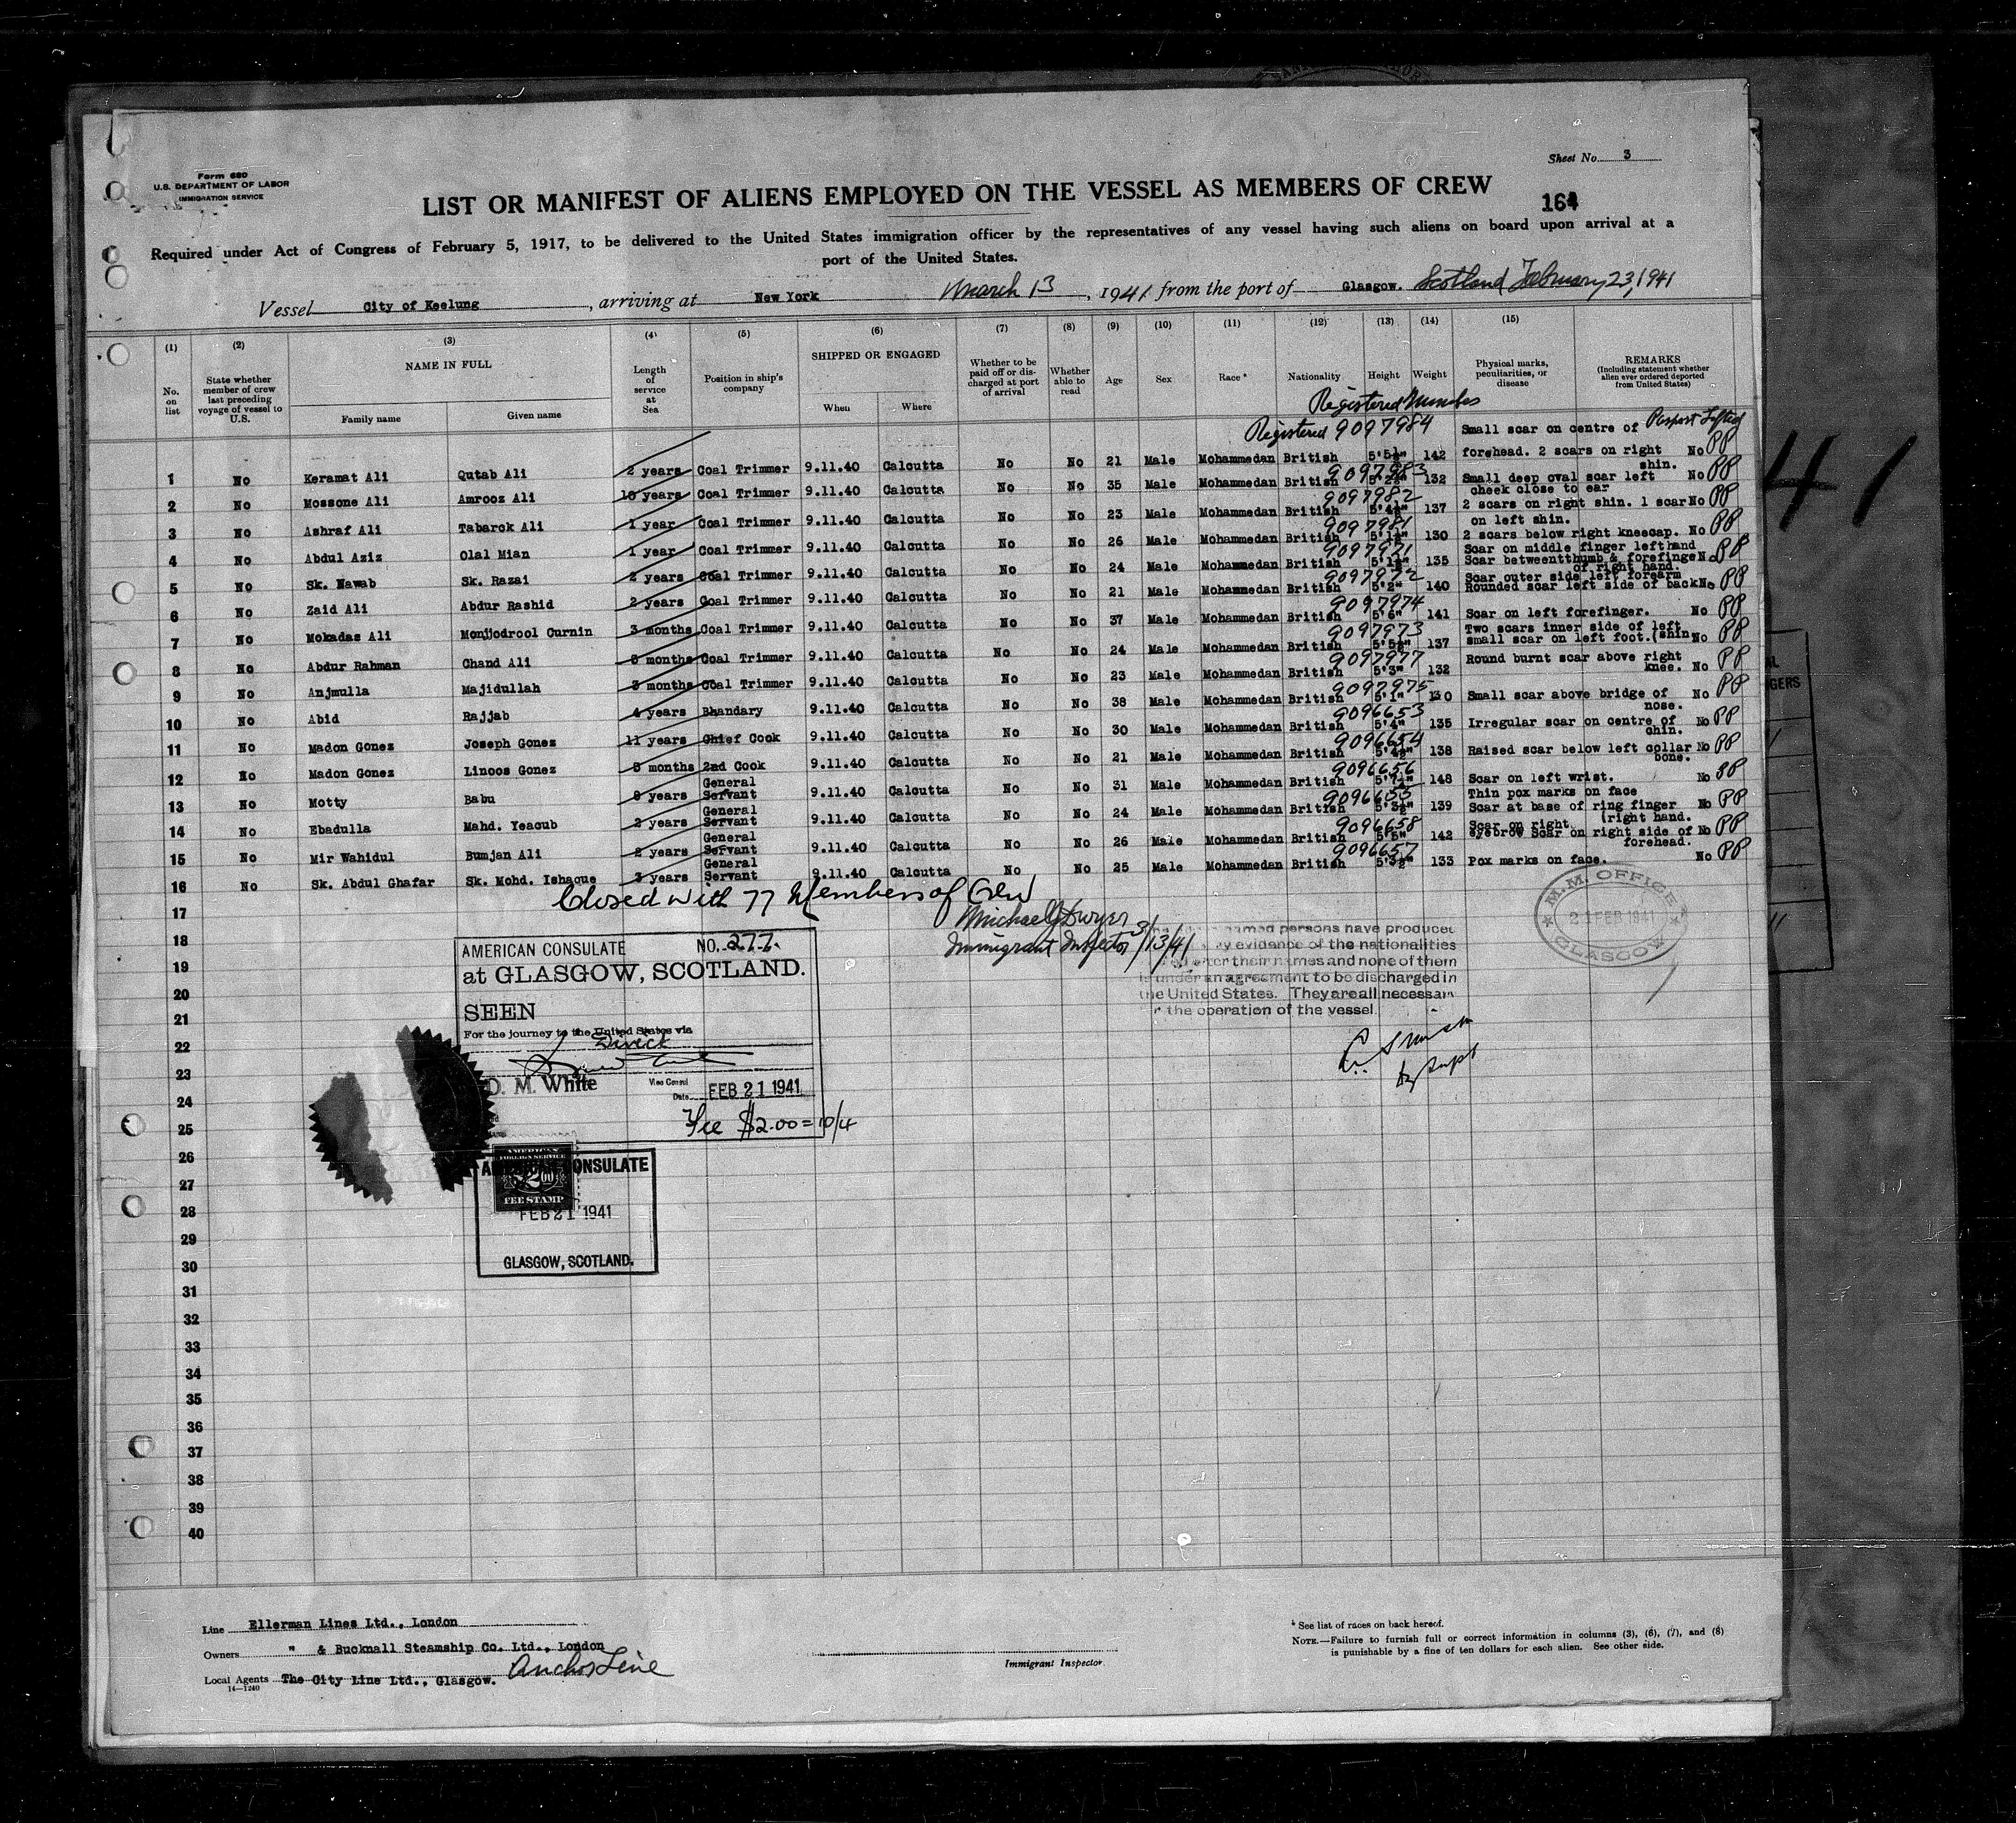 Form 680
U.S. DEPARTMENT OF LABOR
IMMIGRATION SERVICE
Sheet No. 3
LIST OR MANIFEST OF ALIENS EMPLOYED ON THE VESSEL AS MEMBERS OF CREW
164
Required under Act of Congress of February 5, 1917, to be delivered to the United States immigration officer by the representatives of any vessel having such aliens on board upon arrival at a
port of the United States.
Vessel City of Keelung, arriving at New York March 13, 1941, from the port of Glasgow. Scotland February 23, 1941
(1) No. on list
(2) State whether member of crew last preceding voyage of vessel to U.S.
(3) NAME IN FULL Family name Given name
(4) Length of service at Sea
(5) Position in ship's company
(6) SHIPPED OR ENGAGED When Where
(7) Whether to be paid off or discharged at port of arrival
(8) Whether able to read
(9) Age
(10) Sex
(11) Race *
(12) Nationality
(13) Height
(14) Weight
(15) Physical marks, peculiarities, or disease
REMARKS (Including statement whether alien ever ordered deported from United States)
Registered Number
Registered 9097984 Passport Lifted
1 No Keramat Ali Qutab Ali 2 years Coal Trimmer 9.11.40 Calcutta No No 21 Male Mohammedan British 5'5½" 142 Small scar on centre of forehead. 2 scars on right shin. No PP
9097983
2 No Mossone Ali Amrooz Ali 10 years Coal Trimmer 9.11.40 Calcutta No No 35 Male Mohammedan British 5'2½" 132 Small deep oval scar left cheek close to ear No PP
9097982
3 No Ashraf Ali Tabarok Ali 1 year Coal Trimmer 9.11.40 Calcutta No No 23 Male Mohammedan British 5'4½" 137 2 scars on right shin. 1 scar on left shin. No PP
9097981
4 No Abdul Aziz Olal Mian 1 year Coal Trimmer 9.11.40 Calcutta No No 26 Male Mohammedan British 5'1½" 130 2 scars below right kneecap. No PP
9097971
5 No Sk. Nawab Sk. Razai 2 years Coal Trimmer 9.11.40 Calcutta No No 24 Male Mohammedan British 5'1½" 135 Scar on middle finger left hand Scar between thumb & forefinger of right hand. No PP
9097972
6 No Zaid Ali Abdur Rashid 2 years Coal Trimmer 9.11.40 Calcutta No No 21 Male Mohammedan British 5'2" 140 Scar outer side left forearm Rounded scar left side of back No PP
9097974
7 No Mokadas Ali Monjjodrool Curnin 3 months Coal Trimmer 9.11.40 Calcutta No No 37 Male Mohammedan British 5'6" 141 Scar on left forefinger. No PP
9097973
8 No Abdur Rahman Chand Ali 8 months Coal Trimmer 9.11.40 Calcutta No No 24 Male Mohammedan British 5'5½" 137 Two scars inner side of left small scar on left foot. (shin No PP
9097977
9 No Anjmulla Majidullah 3 months Coal Trimmer 9.11.40 Calcutta No No 23 Male Mohammedan British 5'3" 132 Round burnt scar above right knee. No PP
9097975
10 No Abid Rajjab 4 years Bhandary 9.11.40 Calcutta No No 38 Male Mohammedan British 5'1" 130 Small scar above bridge of nose. No PP
9096653
11 No Madon Gonez Joseph Gonez 11 years Chief Cook 9.11.40 Calcutta No No 30 Male Mohammedan British 5'4" 135 Irregular scar on centre of chin. No PP
9096654
12 No Madon Gonez Linoos Gonez 8 months 2nd Cook 9.11.40 Calcutta No No 21 Male Mohammedan British 5'4½" 138 Raised scar below left collar bone. No PP
9096656
13 No Motty Babu 8 years General Servant 9.11.40 Calcutta No No 31 Male Mohammedan British 5'7½" 148 Scar on left wrist. No PP
9096655
14 No Ebadulla Mahd. Yeacub 2 years General Servant 9.11.40 Calcutta No No 24 Male Mohammedan British 5'3½" 139 Thin pox marks on face Scar at base of ring finger (right hand. No PP
9096658
15 No Mir Wahidul Bumjan Ali 2 years General Servant 9.11.40 Calcutta No No 26 Male Mohammedan British 5'5" 142 Scar on right eyebrow Scar on right side of forehead. No PP
9096657
16 No Sk. Abdul Ghafar Sk. Mohd. Ishaque 3 years General Servant 9.11.40 Calcutta No No 25 Male Mohammedan British 5'3½" 133 Pox marks on face. No PP
Closed with 77 Members of Crew
Michael J Dwyer
Immigrant Inspector 3/13/41
M.M. OFFICE
21 FEB 1941
GLASGOW
named persons have produced
evidence of the nationalities
after their names and none of them
is under an agreement to be discharged in
the United States. They are all necessary
the operation of the vessel.
Supt
AMERICAN CONSULATE NO. 277.
at GLASGOW, SCOTLAND.
SEEN
For the journey to the United States via
Direct
D. M. White
Vice Consul
Date FEB 21 1941
Fee $2.00 = 10/4
AMERICAN
FOREIGN SERVICE
$2.00
FEE STAMP
AMERICAN CONSULATE
FEB 21 1941
GLASGOW, SCOTLAND.
17
18
19
20
21
22
23
24
25
26
27
28
29
30
31
32
33
34
35
36
37
38
39
40
Line Ellerman Lines Ltd., London
Owners " & Bucknall Steamship Co. Ltd., London
Local Agents The City Line Ltd., Glasgow. Anchor Line
14—1240
Immigrant Inspector
* See list of races on back hereof.
NOTE.—Failure to furnish full or correct information in columns (3), (6), (7), and (8)
is punishable by a fine of ten dollars for each alien. See other side.
41
GERS